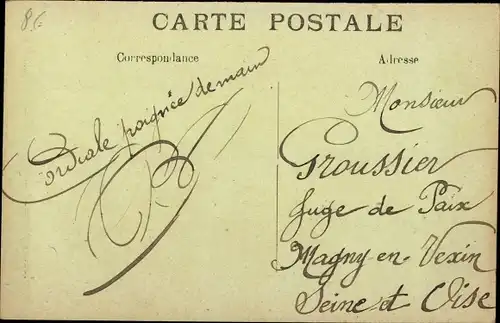 8€
CARTE POSTALE
Correspondance
Adresse
Cordiale poignée de main
Monsieur
Groussier
Juge de Paix
Magny-en-Vexin
Seine et Oise